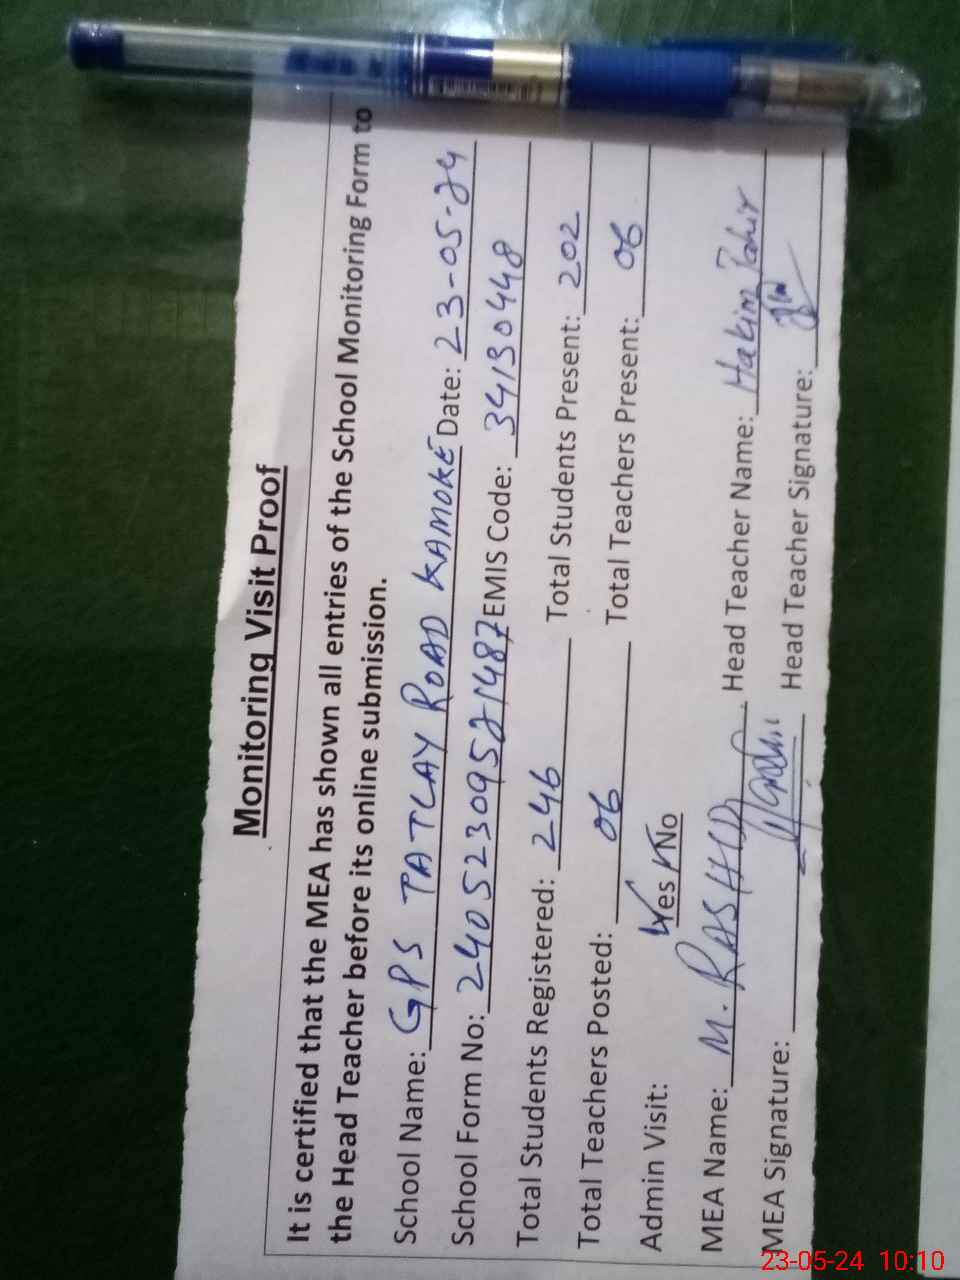 Monitoring Visit Proof
It is certified that the MEA has shown all entries of the School Monitoring Form to
the Head Teacher before its online submission.
School Name: GPS TATLAY ROAD KAMOKE Date: 23-05-24
School Form No: 24052309521487 EMIS Code: 34130448
Total Students Registered: 246 Total Students Present: 202
Total Teachers Posted: 06 Total Teachers Present: 06
Admin Visit: Yes / No
MEA Name: M. RASHID Head Teacher Name: Hakim Tahir
MEA Signature: Head Teacher Signature:
23-05-24 10:10